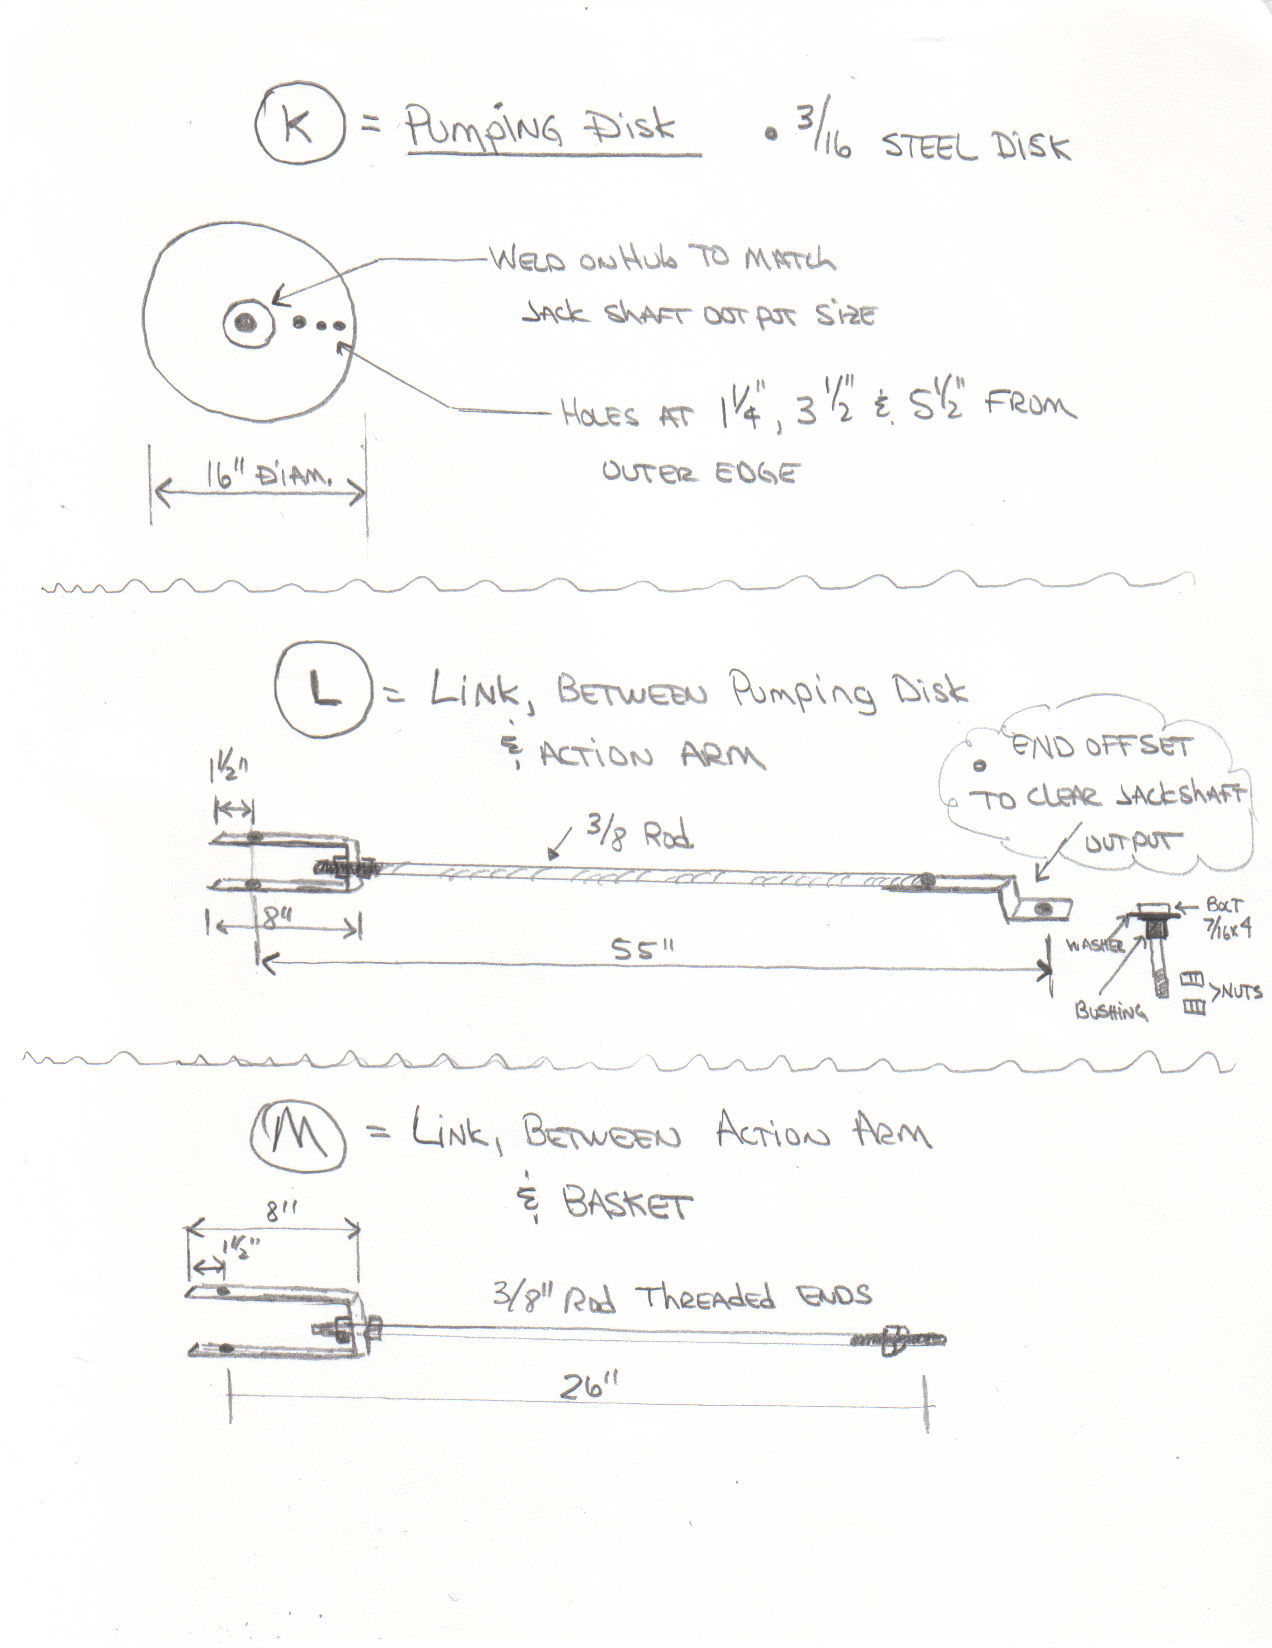 K = Pumping Disk • 3/16 STEEL DISK
WELD ON Hub TO MATCH
JACK SHAFT OUTPUT SIZE
HOLES AT 1 1/4", 3 1/2" & 5 1/2" FROM
OUTER EDGE
16" DIAM.
L = LINK, BETWEEN Pumping Disk
& ACTION ARM
• END OFFSET
TO CLEAR JACKSHAFT
OUTPUT
1 1/2"
3/8 Rod
8"
55"
BOLT
7/16 x 4
WASHER
BUSHING
NUTS
M = LINK, BETWEEN ACTION ARM
& BASKET
8"
1 1/2"
3/8" Rod THREADED ENDS
26"